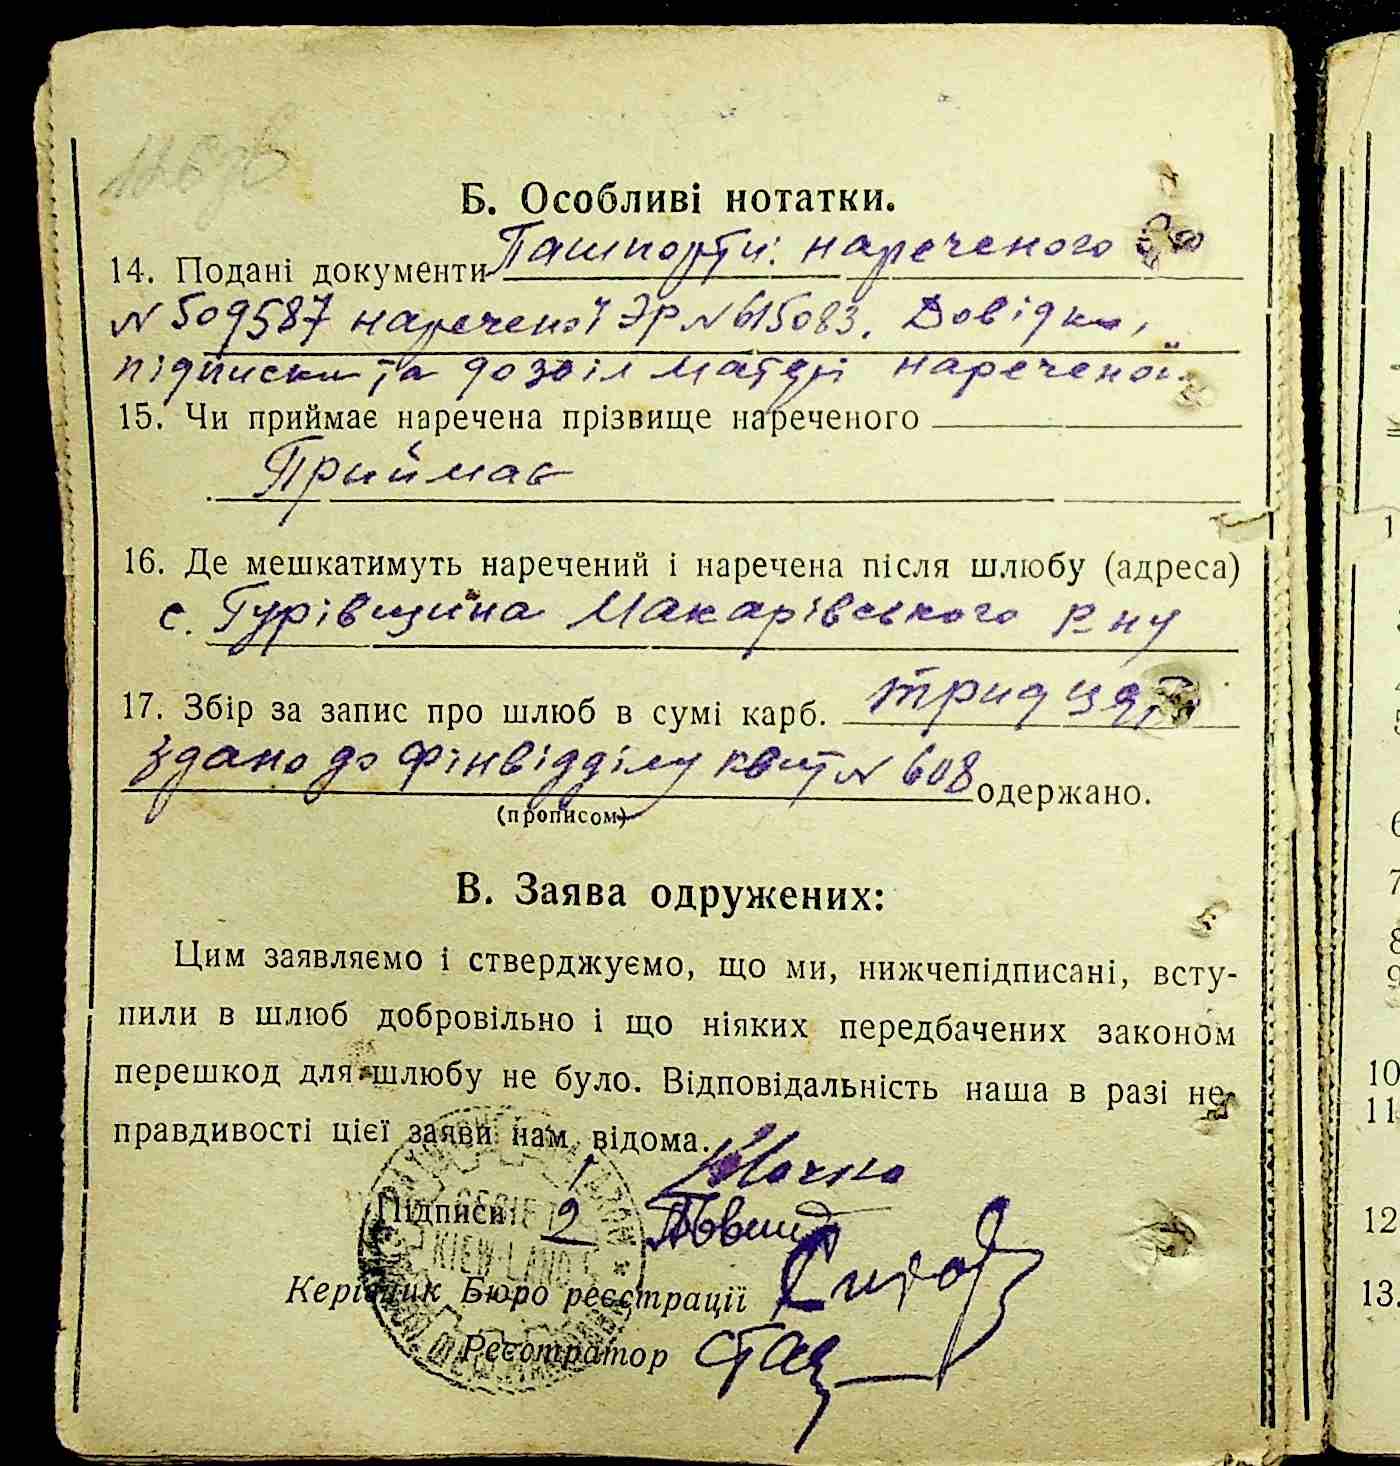 Б. Особливі нотатки.
14. Подані документи Пашпорти: нареченого
N 509587 нареченої ЭР N 615083. Довідки,
підписки та дозвіл матері нареченої
15. Чи приймає наречена прізвище нареченого
Приймає
16. Де мешкатимуть наречений і наречена після шлюбу (адреса)
с. Гурівщина Макарівського р-ну
17. Збір за запис про шлюб в сумі карб. тридцять
здано до фінвідділу квит N 608 одержано.
(прописом)
В. Заява одружених:
Цим заявляємо і стверджуємо, що ми, нижчепідписані, всту-
пили в шлюб добровільно і що ніяких передбачених законом
перешкод для шлюбу не було. Відповідальність наша в разі не-
правдивості цієї заяви нам відома.
1
Підписи 2
KIEW-LAND
Керівник Бюро реєстрації
Реєстратор
1
5
6
7
8
9
10
11
12
13.